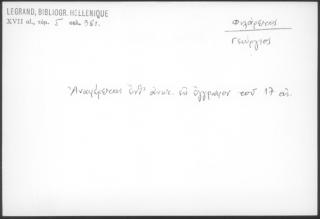 LEGRAND, BIBLIOGR. HELLENIQUE
XVII αἰ., τόμ. 5 σελ. 361.
Φιλάρετος
Γεώργιος
Ἀναφέρεται ὑπ' ἀνωτ. εἰς ἔγγραφον τοῦ 17 αἰ.